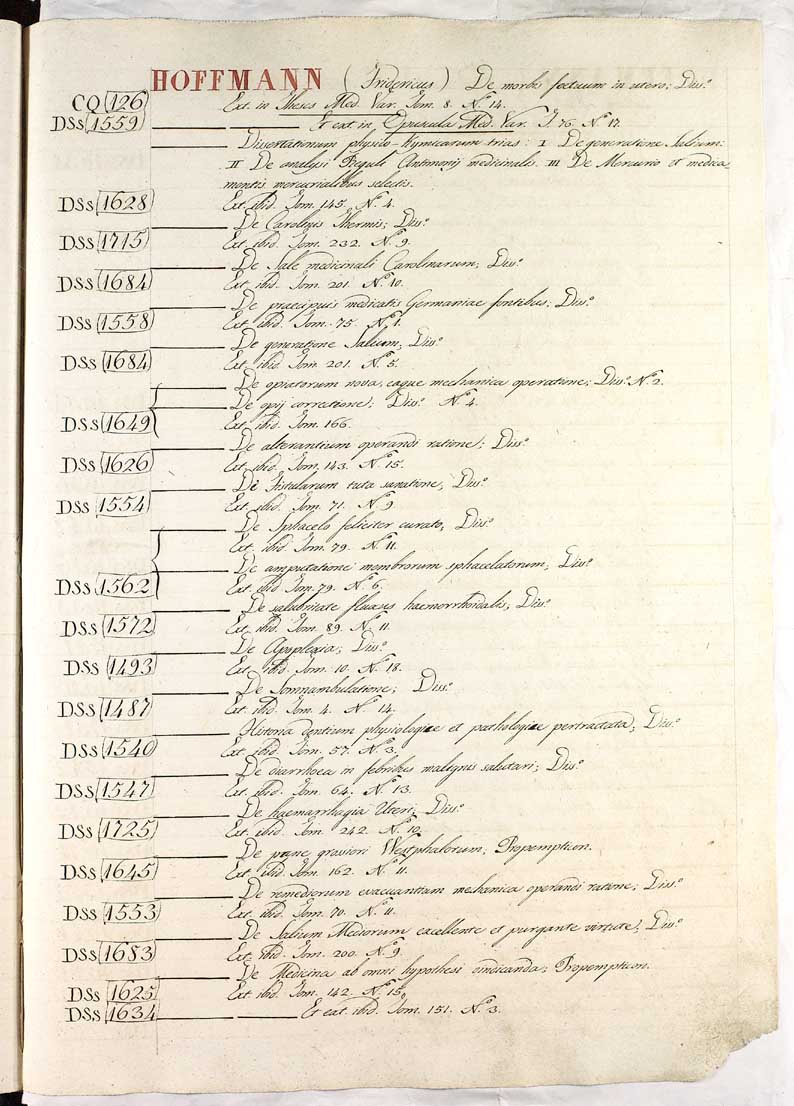 HOFFMANN (Fridericus) De morbis foetuum in utero; Diss.o
CQ 126 Ext. in Theses Med. Var. Tom. 8. N.o 14.
DSs 1559 Et ext in Opuscula Med. Var. T. 76. N.o 17.
Dissertationum physico-kymicarum trias: I De generatione Salium:
II De analysi Reguli Antimonij medicinalis. III De Mercurio et medica-
mentis mercurialibus selectis.
DSs 1628 Ext. ibid. Tom. 145. N.o 4.
De Carolinis Thermis; Diss.o
DSs 1715 Ext. ibid. Tom. 232. N.o 9.
De Sale medicinali Carolinarum; Diss.o
DSs 1684 Ext. ibid. Tom. 201. N.o 10.
De praecipuis medicatis Germaniae fontibus; Diss.o
DSs 1558 Ext. ibid. Tom. 75. N.o 1.
De generatione Salium; Diss.o
DSs 1684 Ext. ibid. Tom. 201. N.o 5.
De opiatorum nova, eaque mechanica operatione; Diss.o N.o 2.
De opij correctione; Diss.o N.o 4.
DSs 1649 Ext. ibid. Tom. 166.
De alterantium operandi ratione; Diss.o
DSs 1626 Ext. ibid. Tom. 143. N.o 15.
De Fistularum tuta sanatione; Diss.o
DSs 1554 Ext. ibid. Tom. 71. N.o 9
De Sphacelo feliciter curato; Diss.o
Ext. ibid. Tom. 79. N.o 11.
De amputatione membrorum sphacelatorum; Diss.o
DSs 1562 Ext. ibid Tom. 79. N.o 6.
De salubritate fluxus haemorrhoidalis; Diss.o
DSs 1572 Ext. ibid. Tom. 89. N.o 11.
De Apoplexia; Diss.o
DSs 1493 Ext. ibid. Tom. 10. N.o 18.
De Somnambulatione; Diss.o
DSs 1487 Ext. ibid. Tom. 4. N.o 14.
Historia dentium physiologice et pathologice pertractata; Diss.o
DSs 1540 Ext. ibid. Tom. 57. N.o 3.
De diarrhoea in febribus malignis salutari; Diss.o
DSs 1547 Ext. ibid. Tom. 64. N.o 13.
De haemorrhagia Uteri; Diss.o
DSs 1725 Ext. ibid. Tom. 242. N.o 10.
De pane graviori Westphalorum; Propempticon.
DSs 1645 Ext. ibid. Tom. 162. N.o 11.
De remediorum evacuantium mechanica operandi ratione; Diss.o
DSs 1553 Ext. ibid. Tom. 70. N.o 11.
De Salium Mediorum excellente et purgante virtute; Diss.o
DSs 1683 Ext. ibid. Tom. 200. N.o 9.
De Medicina ab omni hypothesi vindicanda; Propempticon.
DSs 1625 Ext. ibid. Tom. 142. N.o 15.
DSs 1634 Et ext. ibid. Tom. 151. N.o 3.